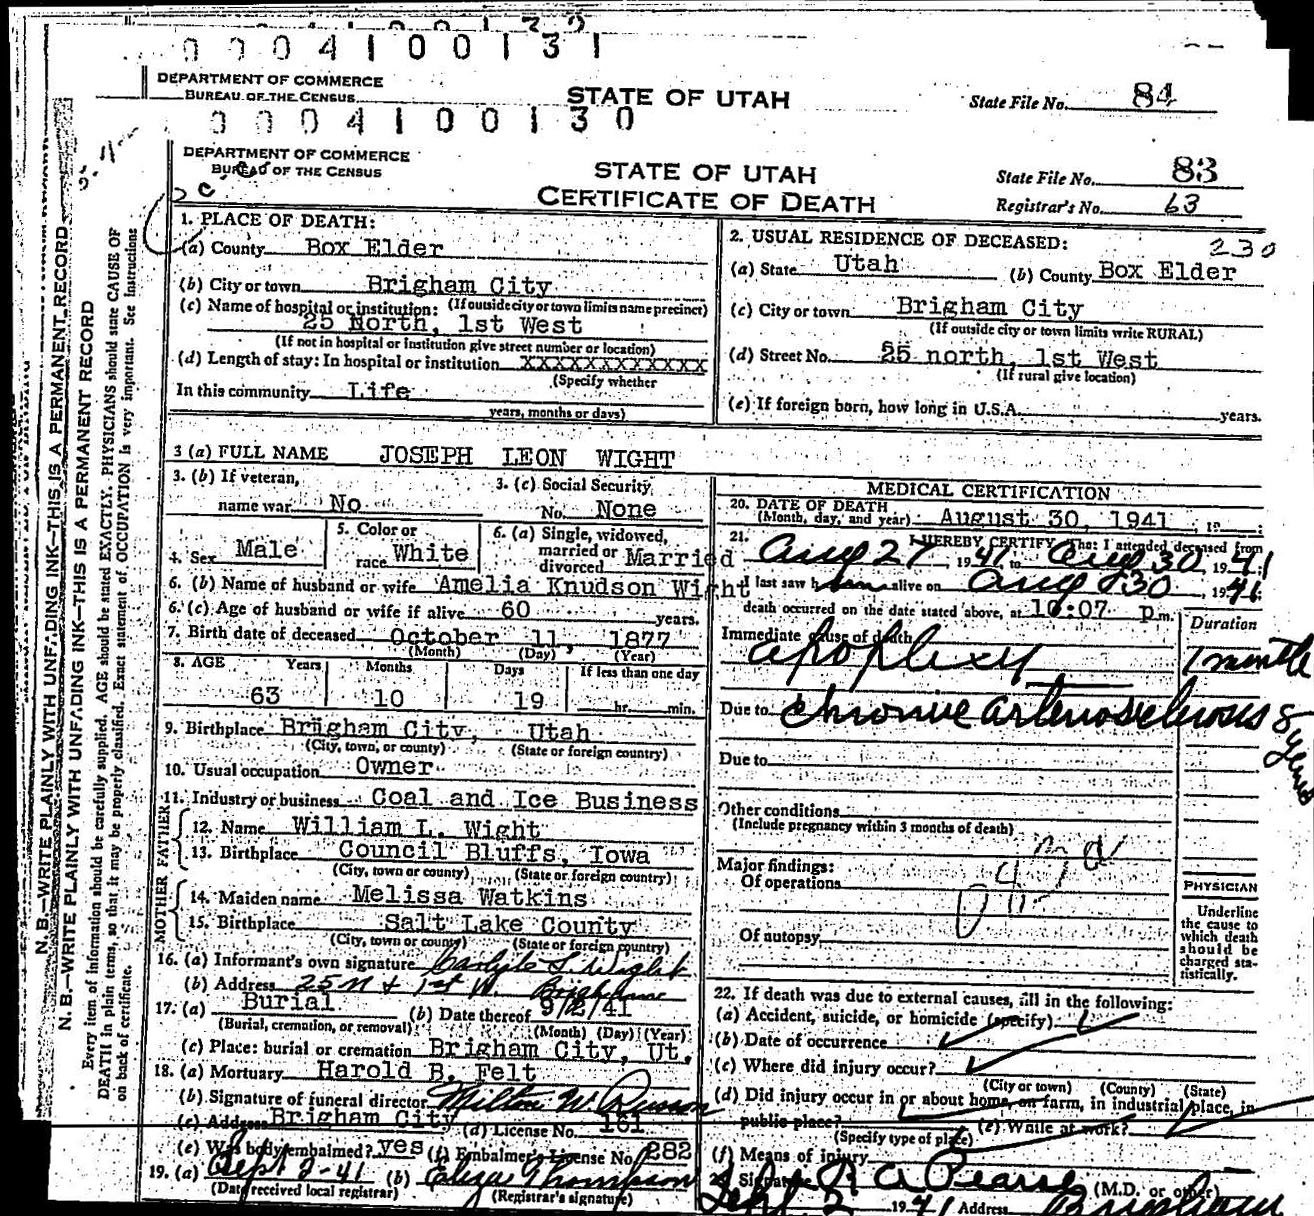 0 0 0 4 1 0 0 1 3 1
DEPARTMENT OF COMMERCE
BUREAU OF THE CENSUS
STATE OF UTAH
State File No. 84
0 0 0 4 1 0 0 1 3 0
DEPARTMENT OF COMMERCE
BUREAU OF THE CENSUS
STATE OF UTAH
CERTIFICATE OF DEATH
State File No. 83
Registrar's No. 63
N. B.—WRITE PLAINLY WITH UNFADING INK—THIS IS A PERMANENT RECORD
N. B.—WRITE PLAINLY WITH UNFADING INK—THIS IS A PERMANENT RECORD
Every item of information should be carefully supplied. AGE should be stated EXACTLY. PHYSICIANS should state CAUSE OF
DEATH in plain terms, so that it may be properly classified. Exact statement of OCCUPATION is very important. See Instructions
on back of certificate.
1. PLACE OF DEATH:
(a) County Box Elder
(b) City or town Brigham City
(If outside city or town limits name precinct)
(c) Name of hospital or institution:
25 North, 1st West
(If not in hospital or institution give street number or location)
(d) Length of stay: In hospital or institution XXXXXXXXXXXX
(Specify whether
In this community Life
years, months or days)
2. USUAL RESIDENCE OF DECEASED: 230
(a) State Utah (b) County Box Elder
(c) City or town Brigham City
(If outside city or town limits write RURAL)
(d) Street No. 25 north, 1st West
(If rural give location)
(e) If foreign born, how long in U.S.A. years.
3 (a) FULL NAME JOSEPH LEON WIGHT
3. (b) If veteran,
name war No
3. (c) Social Security
No. None
4. Sex Male
5. Color or
race White
6. (a) Single, widowed,
married or
divorced Married
6. (b) Name of husband or wife Amelia Knudson Wight
6. (c) Age of husband or wife if alive 60 years.
7. Birth date of deceased October 11, 1877
(Month) (Day) (Year)
8. AGE Years Months Days If less than one day
63 10 19 hr. min.
9. Birthplace Brigham City, Utah
(City, town, or county) (State or foreign country)
10. Usual occupation Owner
11. Industry or business Coal and Ice Business
FATHER
12. Name William L. Wight
13. Birthplace Council Bluffs, Iowa
(City, town or county) (State or foreign country)
MOTHER
14. Maiden name Melissa Watkins
15. Birthplace Salt Lake County
(City, town or county) (State or foreign country)
16. (a) Informant's own signature Carlyle L. Wight
(b) Address 25 N & 1st W. Brigham
17. (a) Burial (b) Date thereof 9/2/41
(Burial, cremation, or removal) (Month) (Day) (Year)
(c) Place: burial or cremation Brigham City, Ut.
18. (a) Mortuary Harold B. Felt
(b) Signature of funeral director Milton W.
(c) Address Brigham City (d) License No. 161
(e) Was body embalmed? yes (f) Embalmer's License No. 282
19. (a) Sept 2-41 (b) Thompson
(Date received local registrar) (Registrar's signature)
MEDICAL CERTIFICATION
20. DATE OF DEATH
(Month, day, and year) August 30, 1941, 19
21. I HEREBY CERTIFY That I attended deceased from
Aug 27 1941 to Aug 30, 1941
I last saw him alive on Aug 30, 1941
death occurred on the date stated above, at 10:07 p. m.
Duration
Immediate cause of death
apoplexy 1 month
Due to chronic arteriosclerosis 8 years
Due to
Other conditions
(Include pregnancy within 3 months of death)
Major findings:
Of operations
Of autopsy
PHYSICIAN
Underline
the cause to
which death
should be
charged sta-
tistically.
22. If death was due to external causes, fill in the following:
(a) Accident, suicide, or homicide (specify)
(b) Date of occurrence
(c) Where did injury occur?
(City or town) (County) (State)
(d) Did injury occur in or about home, on farm, in industrial place, in
public place?
(Specify type of place) (e) While at work?
(f) Means of injury
Signature R A Pearse (M.D. or other)
Sept 2 1941 Address Brigham